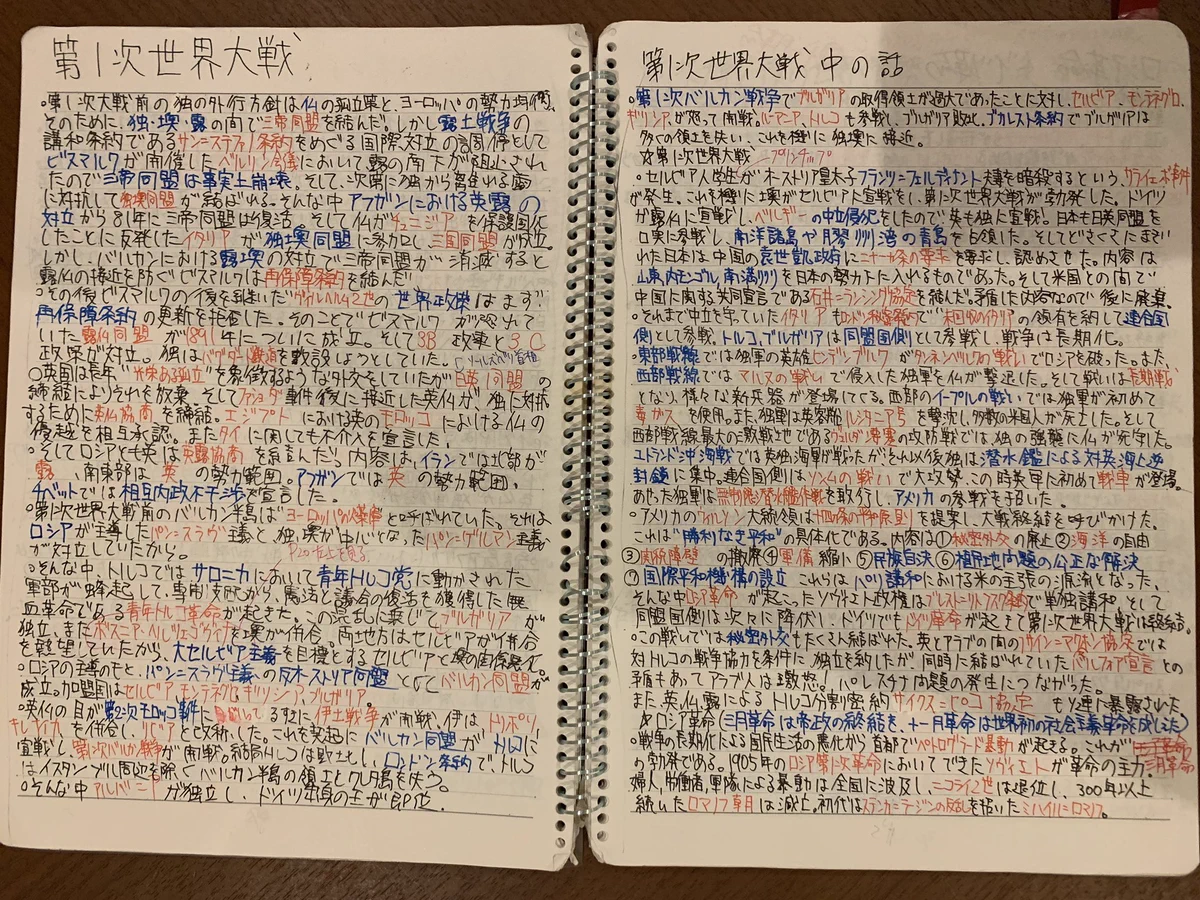 第1次世界大戦
○第1次大戦前の独の外行方針は仏の孤立策と、ヨーロッパの勢力均衡。
そのために、独・墺・露の間で三帝同盟を結んだ。しかし露土戦争の
講和条約であるサン=ステファノ条約をめぐる国際対立の調停として
ビスマルクが開催したベルリン会議において露の南下が阻止され
たので三帝同盟は事実上崩壊。そして、次第に独から離れる露
に対抗して独墺同盟が結ばれる。そんな中アフガンにおける英露の
対立から81年に三帝同盟は復活。そして仏がチュニジアを保護国化
したことに反発したイタリアが独墺同盟に参加し、三国同盟が成立。
しかし、バルカンにおける露墺の対立で三帝同盟が消滅すると
露仏の接近を防ぐビスマルクは再保障条約を結んだ
○その後ビスマルクの後を継いだヴィルヘルム2世の世界政策はまず
再保障条約の更新を拒否した。そのことでビスマルクが恐れて
いた露仏同盟が1891年についに成立。そして3B政策と3C
政策が対立。独はバグダード鉄道を敷設しようとしていた。
○英国は長年"光栄ある孤立"を象徴するような外交をしていたが日英同盟の
締結によりそれを放棄。そしてファショダ事件後に接近した英仏が、独に対抗
するために英仏協商を締結。エジプトにおける英のモロッコにおける仏の
優越を相互承認。またタイに関しても不介入を宣言した。
○そしてロシアとも英は英露協商を結んだ。内容は、イランでは北部が
露、南東部は英の勢力範囲。アフガンでは英の勢力範囲、
チベットでは相互内政不干渉で宣言した。
○第1次世界大戦前のバルカン半島は"ヨーロッパの火薬庫"と呼ばれていた。それは
ロシアが主導したパン=スラヴ主義と、独・墺が中心となったパン=ゲルマン主義
が対立していたから。 P20右上を見る
○そんな中、トルコではサロニカにおいて青年トルコ党に動かされた
軍部が蜂起して、専制支配から、憲法と議会の復活を獲得した無
血革命である青年トルコ革命が起きた。この混乱に乗じてブルガリアが
独立、またボスニア・ヘルツェゴヴィナを墺が併合。両地方はセルビアが併合
を熱望していたから、大セルビア主義を目標とするセルビアと墺の関係悪化。
○ロシアの主導のもと、パン=スラヴ主義の反オーストリア同盟としてバルカン同盟が
成立。加盟国はセルビア、モンテネグロ、ギリシア、ブルガリア。
○英仏の目が第2次モロッコ事件に している すきに伊土戦争が開戦、伊はトリポリ、
キレナイカを併合し、リビアと改称した。これを契起にバルカン同盟がトルコに
宣戦し、第1次バルカン戦争が開戦。結局トルコは敗北し、ロンドン条約で、トルコ
はイスタンブル周辺を除くバルカン半島の領土とクレタ島を失う。
○そんな中アルバニアが独立し、ドイツ の王が即位。
第1次世界大戦 中の話
○第1次バルカン戦争でブルガリアの取得領土が過大であったことに対し、セルビア、モンテネグロ、
ギリシアが怒って開戦。ルーマニア、トルコも参戦し、ブルガリア敗北。ブカレスト条約でブルガリアは
多くの領土を失い、これを機に独墺に接近。
☆第1次世界大戦
○セルビア人学生がオーストリア皇太子フランツ=フェルディナント夫妻を暗殺するという、サライェヴォ事件
が発生。これを機に墺がセルビアに宣戦をし、第1次世界大戦が勃発した。ドイツ
が露仏に宣戦し、ベルギーの中立侵犯をしたので英も独に宣戦!日本も日英同盟を
口実に参戦し、南洋諸島や膠州湾の青島を占領した。そしてどさくさにまぎ
れた日本は、中国の袁世凱政府に二十一か条の要求を要求し、認めさせた。内容は
山東、内モンゴル、南満州を日本の勢力下に入れるものであった。そして米国との間で
中国に関する共同宣言である石井=ランシング協定を結んだ。矛盾した内容なので後に廃棄。
○それまで中立を守っていたイタリアもロンドン秘密条約で"未回収のイタリア"の領有を約して連合国
側として参戦。トルコ、ブルガリアは同盟国側として参戦し、戦争は長期化。
○東部戦線では独軍の英雄ヒンデンブルクがタンネンベルクの戦いでロシアを破った。また、
西部戦線ではマルヌの戦いで侵入した独軍を仏が撃退した。そして戦いは長期戦
となり、様々な新兵器が登場してくる。西部のイープルの戦いでは独軍が初めて
毒ガスを使用。また独軍は英客船ルシタニア号を撃沈し、多数の米国人が死亡した。そして
西部戦線最大の激戦地であるヴェルダン要塞の攻防戦では、独の強襲に仏が死守した。
ユトランド沖海戦では英独海軍が戦ったが、それ以後独は潜水艦による対英海上
封鎖に集中。連合国側はソンムの戦いで大攻勢。この時英軍に初めて戦車が登場。
あせった独軍は無制限潜水艦作戦を敢行し、アメリカの参戦を招いた。
○アメリカのウィルソン大統領は十四カ条の平和原則を提案し、大戦終結を呼びかけた。
これは"勝利なき平和"の具体化である。内容は①秘密外交の廃止②海洋の自由
③関税障壁の撤廃④軍備縮小⑤民族自決⑥植民地問題の公正な解決
⑦国際平和機構の設立 これらはパリ講和における米の主張の源流となった。
そんな中ロシア革命が起こったソヴィエト政権はブレスト=リトフスク条約で単独講和そして
同盟国側は次々に降伏し、ドイツでもドイツ革命が起きて第1次世界大戦は終結。
○この戦いでは秘密外交もたくさん結ばれた。英とアラブの間のフサイン=マクマホン協定では
対トルコの戦争協力を条件に独立を約したが同時に結ばれていたバルフォア宣言との
矛盾もあってアラブ人は激怒!パレスチナ問題の発生につながった。
また、英・仏・露によるトルコ分割密約サイクス=ピコ協定もソ連に暴露された
☆ロシア革命(三月革命は帝政の終結を、十一月革命は世界初の社会主義革命を成した)
○戦争の長期化による国民生活の悪化から首都でペトログラード暴動が起きる。これが三月革命
の勃発である。1905年のロシア第1次革命においてできたソヴィエトが革命の主力。
婦人、労働者、軍隊による暴動は全国に波及し、ニコライ2世は退位し、300年以上
続いたロマノフ朝は滅亡。初代はステンカ=ラージンの反乱を招いたミハイル=ロマノフ。